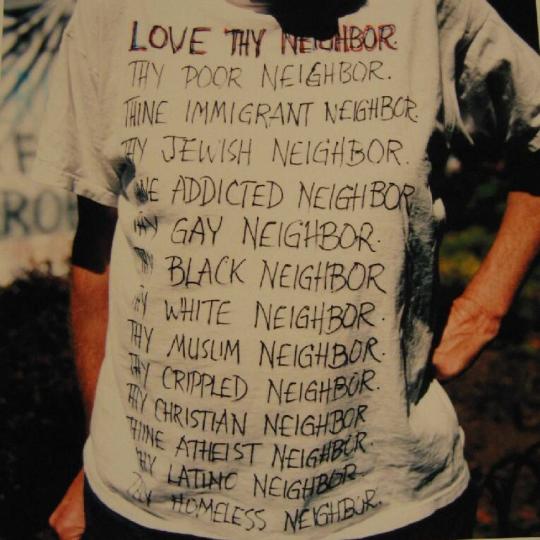 LOVE THY NEIGHBOR.
THY POOR NEIGHBOR.
THINE IMMIGRANT NEIGHBOR.
THY JEWISH NEIGHBOR.
THINE ADDICTED NEIGHBOR
THY GAY NEIGHBOR.
THY BLACK NEIGHBOR
THY WHITE NEIGHBOR.
THY MUSLIM NEIGHBOR.
THY CRIPPLED NEIGHBOR.
THY CHRISTIAN NEIGHBOR
THINE ATHEIST NEIGHBOR
THY LATINO NEIGHBOR.
THY HOMELESS NEIGHBOR.